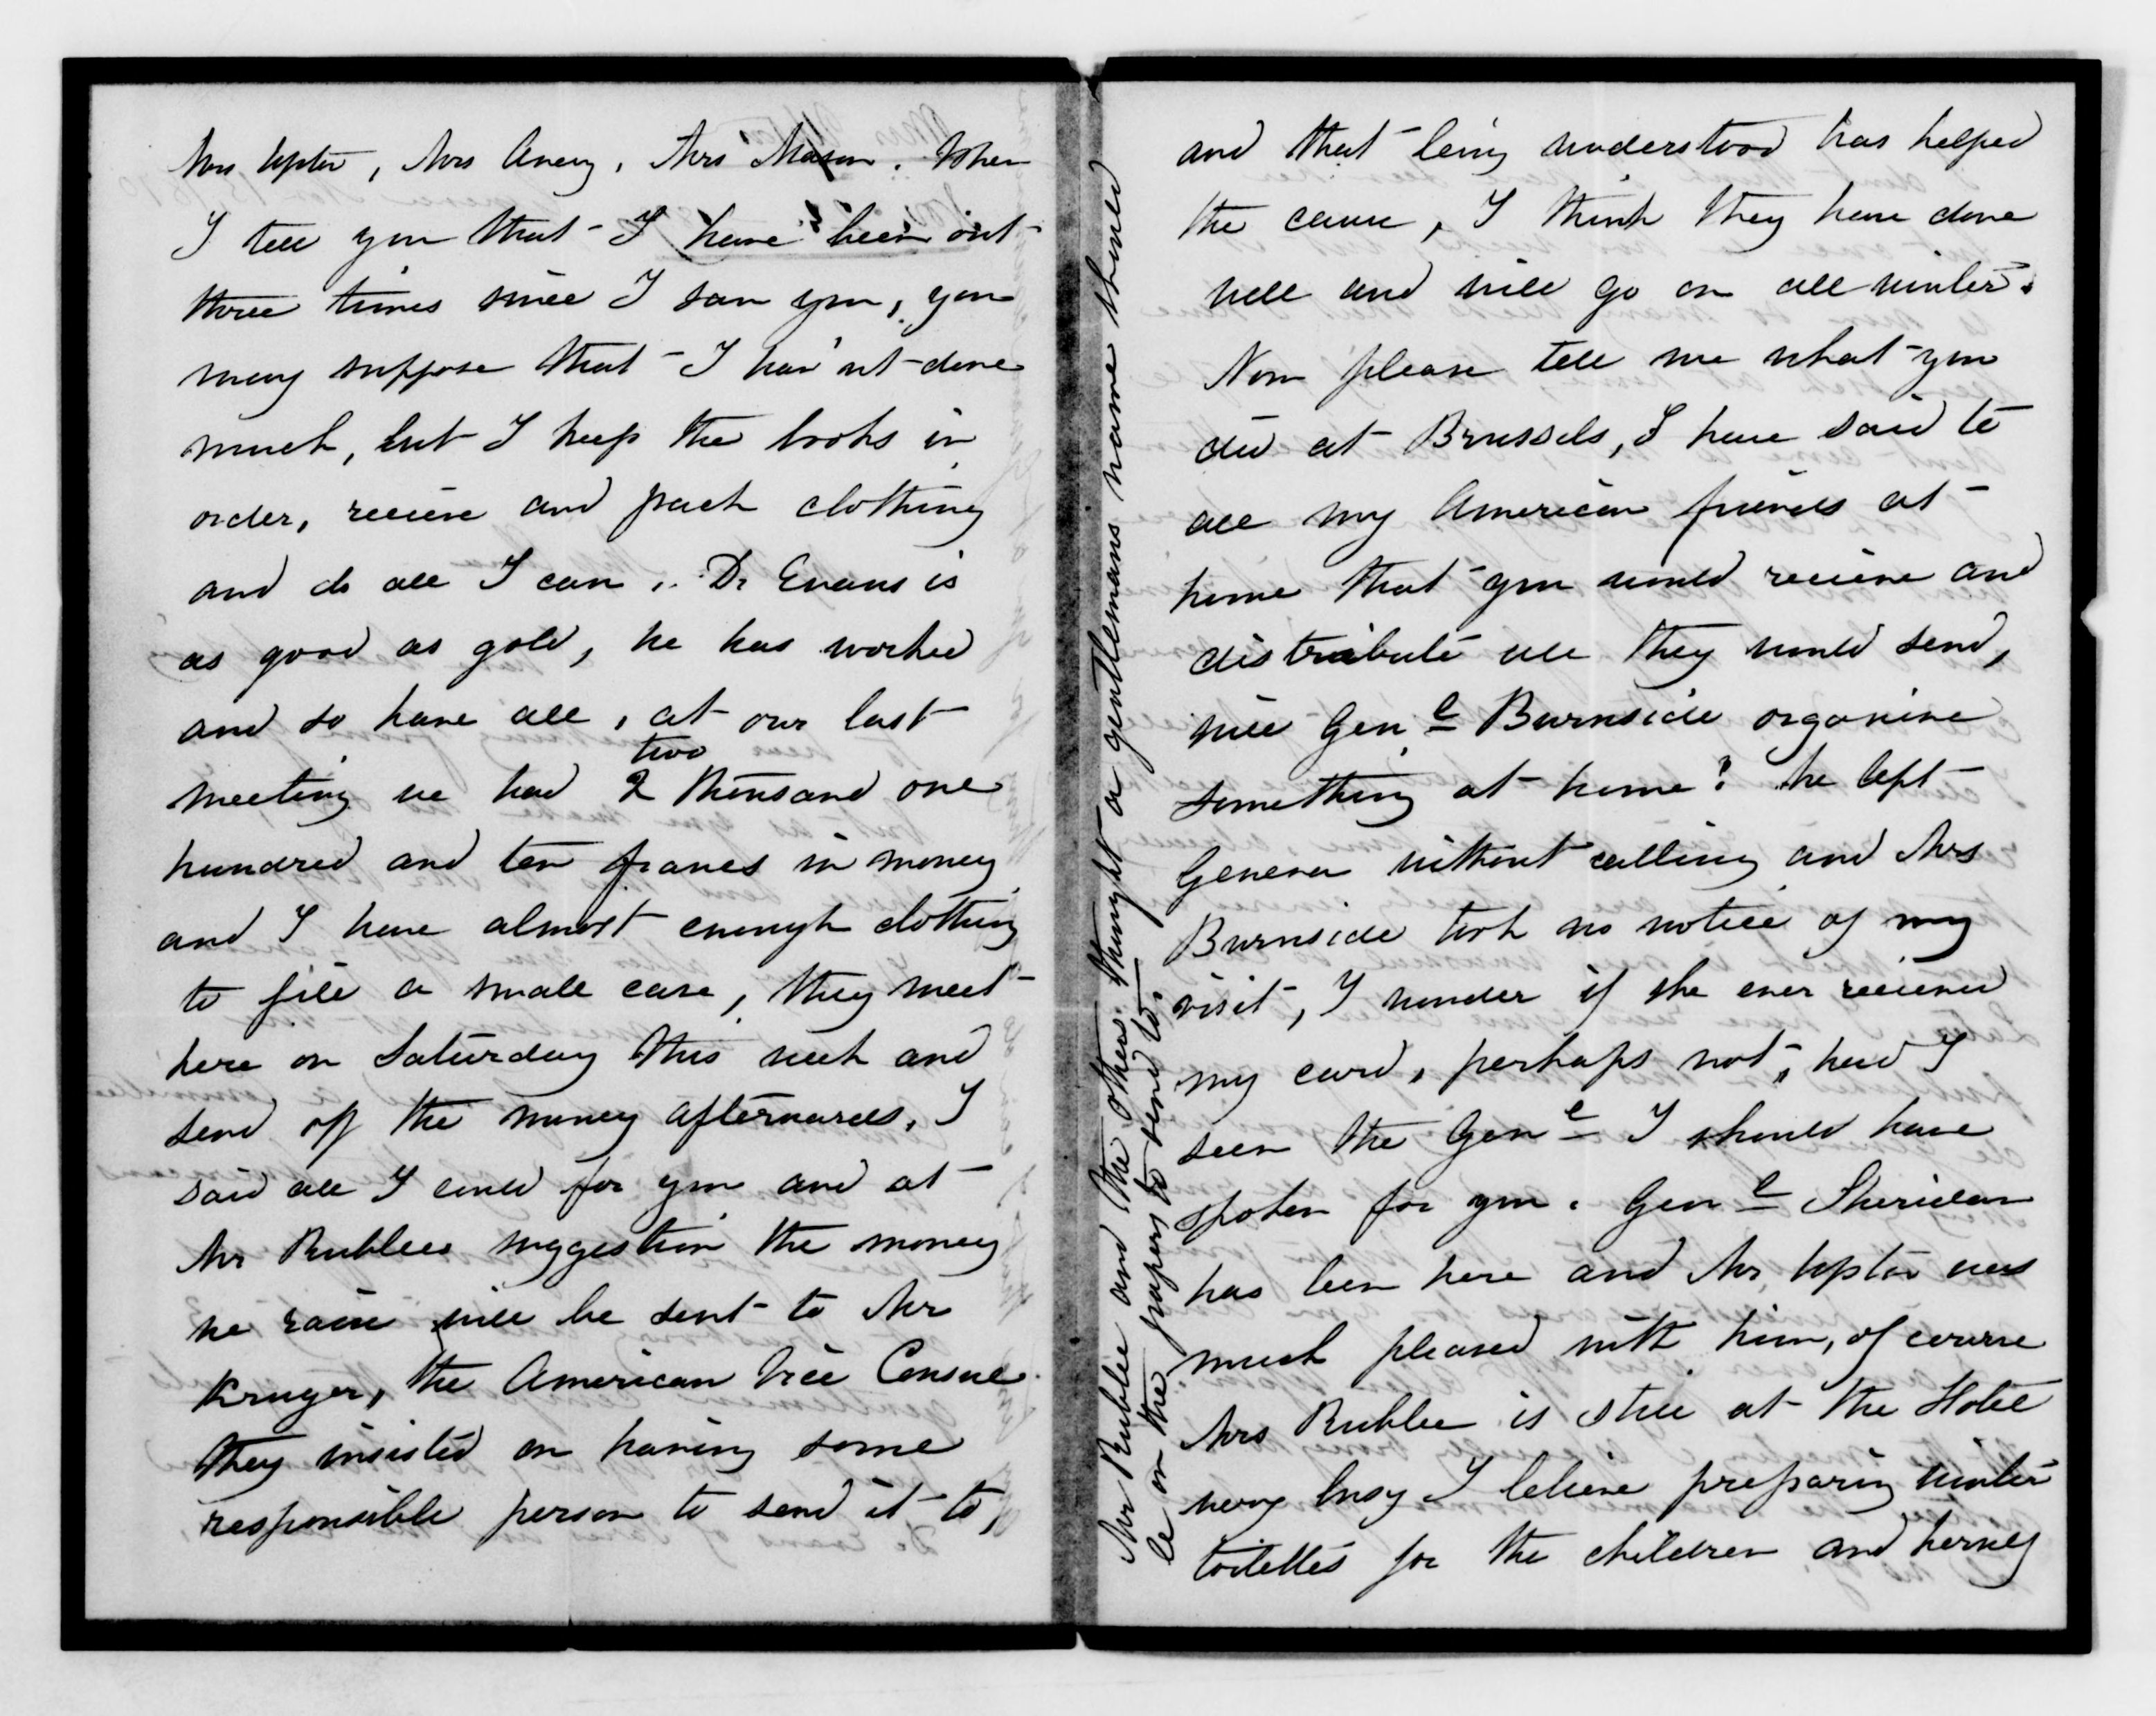 Mrs Upton, Mrs Avery, Mrs Mason. When
I tell you that I have been out
three times since I saw you, you
may suppose that I hav'nt done
much, but I keep the books in
order, recieve and pack clothing
and do all I can. Dr Evans is
as good as gold, he has worked
and so have all, at our last
two
meeting we had 2 thousand one
hundred and ten francs in money
and I have almost enough clothing
to fill a small case, they meet
here on Saturday this week and
send off the money afterwards. I
said all I could for you and at
Mr Rublees suggestion the money
we raise will be sent to Mr
Kruger, the American Vice Consul.
They insisted on having some
responsible person to send it to,
Mr Rublee and the others thought a gentlemans name should
be on the papers to send to.
and that being understood has helped
the cause, I think they have done
well and will go on all winter.
Now please tell me what you
did at Brussels, I have said to
all my American friends at
home that you would recieve and
distribute all they would send,
will Genl Burnside organise
something at home? he left
Geneva without calling and Mrs
Burnside took no notice of my
visit, I wonder if she ever recieved
my card, perhaps not, had I
seen the Genl I should have
spoken for you. Genl Sheridan
has been here and Mr Upton was
much pleased with him, of course
Mrs Rublee is still at the Hotel
very busy I believe preparing winter
toilettes for the children and herself